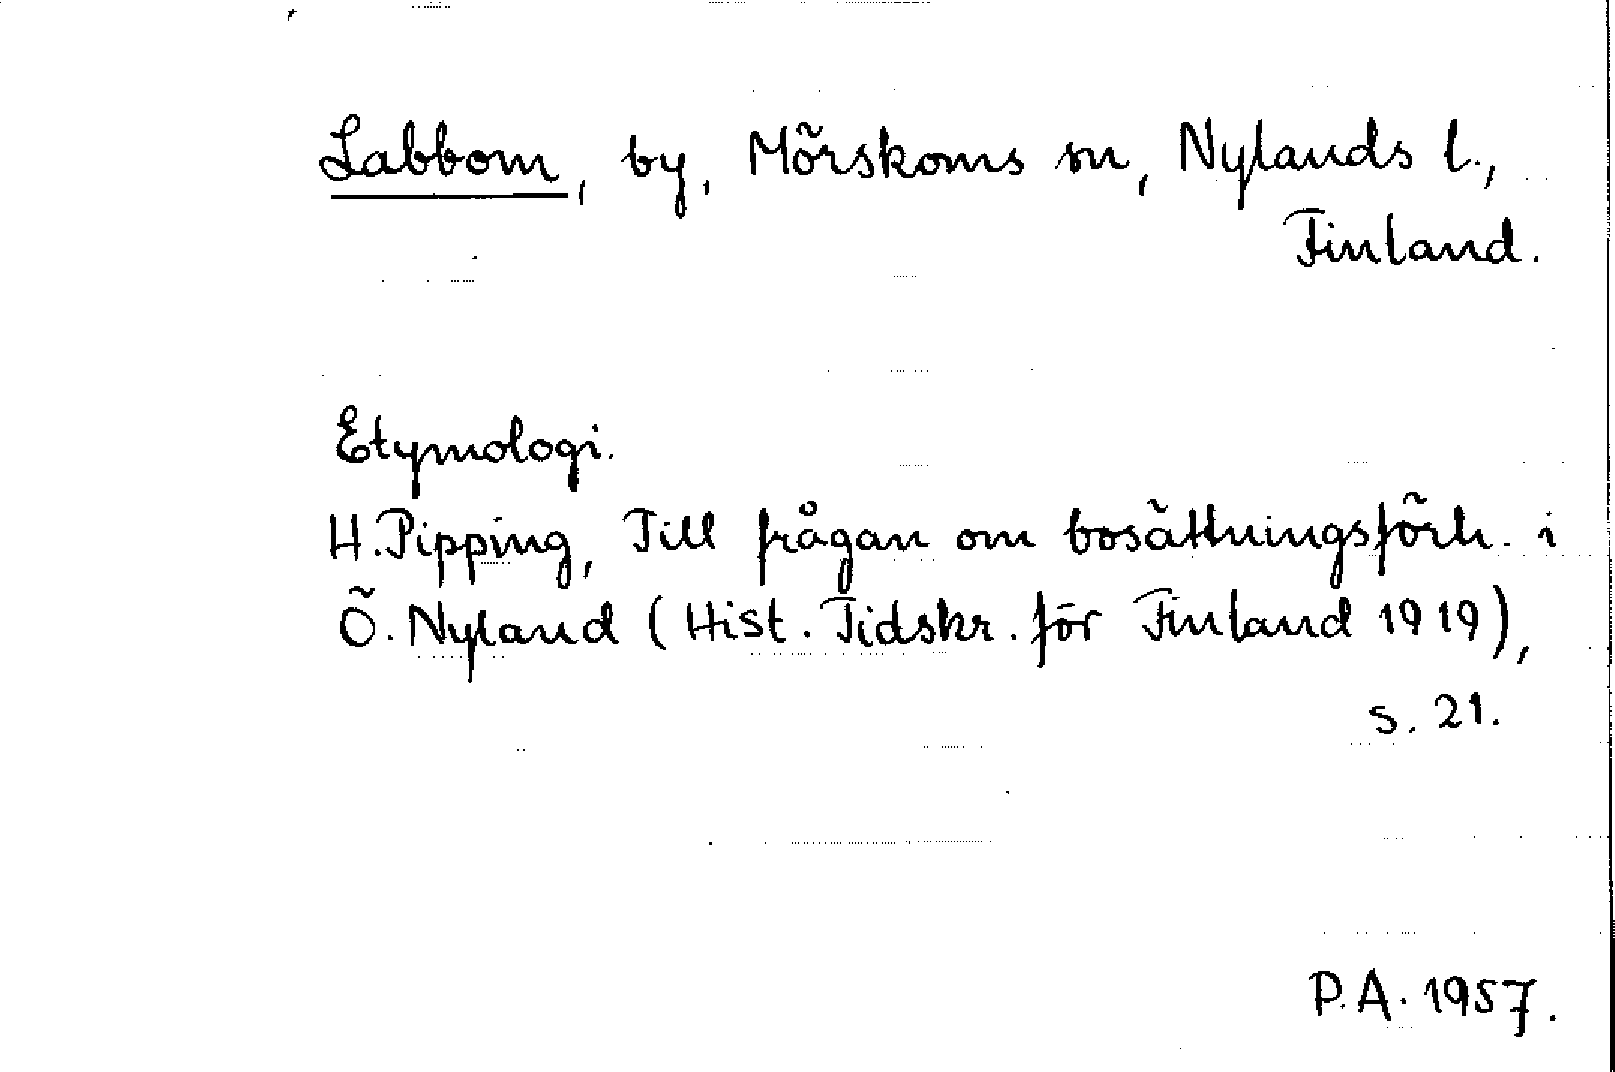 Labbom, by, Mörskoms sn, Nylands l.,
Finland.
Etymologi.
H. Pipping, Till frågan om bosättningsförh. i
Ö. Nyland (Hist. Tidskr. för Finland 1919),
s. 21.
P.A. 1957.